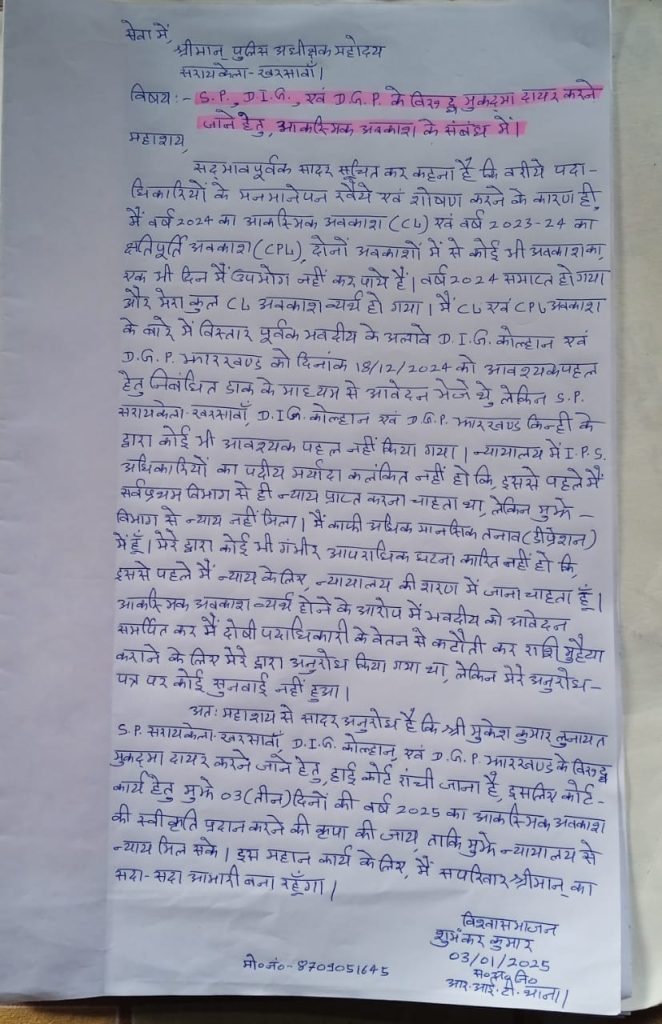 सेवा में,
श्रीमान् पुलिस अधीक्षक महोदय
सरायकेला-खरसावाँ।
विषय:- S.P., D.I.G., एवं D.G.P. के विरुद्ध मुकदमा दायर करने
जाने हेतु, आकस्मिक अवकाश के संबंध में।
महाशय,
सद्भावपूर्वक सादर सूचित कर कहना है कि वरीये पदा-
धिकारियों के मनमानेपन रवैये एवं शोषण करने के कारण ही,
मैं वर्ष 2024 का आकस्मिक अवकाश (CL) एवं वर्ष 2023-24 का
क्षतिपूर्ति अवकाश (CPL), दोनों अवकाशों में से कोई भी अवकाश का,
एक भी दिन मैं उपभोग नहीं कर पाये हैं। वर्ष 2024 समाप्त हो गया
और मेरा कुल CL अवकाश व्यर्थ हो गया। मैं CL एवं CPL अवकाश
के बारे में विस्तार पूर्वक भवदीय के अलावे D.I.G. कोल्हान एवं
D.G.P. झारखण्ड को दिनांक 18/12/2024 को आवश्यक पहल
हेतु निबंधित डाक के माध्यम से आवेदन भेजे थे, लेकिन S.P.
सरायकेला-खरसावाँ, D.I.G. कोल्हान एवं D.G.P. झारखण्ड किन्ही के
द्वारा कोई भी आवश्यक पहल नहीं किया गया। न्यायालय में I.P.S.
अधिकारियों का पदीय मर्यादा कलंकित नहीं हो कि, इससे पहले मैं
सर्वप्रथम विभाग से ही न्याय प्राप्त करना चाहता था, लेकिन मुझे-
विभाग से न्याय नहीं मिला। मैं काफी अधिक मानसिक तनाव (डीप्रेशन)
में हूँ। मेरे द्वारा कोई भी गंभीर आपराधिक घटना कारित नहीं हो कि,
इससे पहले मैं न्याय के लिए, न्यायालय की शरण में जाना चाहता हूँ।
आकस्मिक अवकाश व्यर्थ होने के आरोप में भवदीय को आवेदन
समर्पित कर मैं दोषी पदाधिकारी के वेतन से कटौती कर राशि मुहैया
कराने के लिए मेरे द्वारा अनुरोध किया गया था, लेकिन मेरे अनुरोध-
पत्र पर कोई सुनवाई नहीं हुआ।
अतः महाशय से सादर अनुरोध है कि श्री मुकेश कुमार लुनायत
S.P. सरायकेला-खरसावाँ, D.I.G. कोल्हान, एवं D.G.P. झारखण्ड के विरुद्ध
मुकदमा दायर करने जाने हेतु, हाई कोर्ट रांची जाना है, इसलिए कोर्ट-
कार्य हेतु मुझे 03 (तीन) दिनों की वर्ष 2025 का आकस्मिक अवकाश
की स्वीकृति प्रदान करने की कृपा की जाय ताकि मुझे न्यायालय से
न्याय मिल सके। इस महान कार्य के लिए, मैं सपरिवार श्रीमान् का
सदा-सदा आभारी बना रहूँगा।
विश्वासभाजन
शुभंकर कुमार
03/01/2025
स०अ०नि०
आर.आई.टी. थाना।
मो०नं०-8709051645